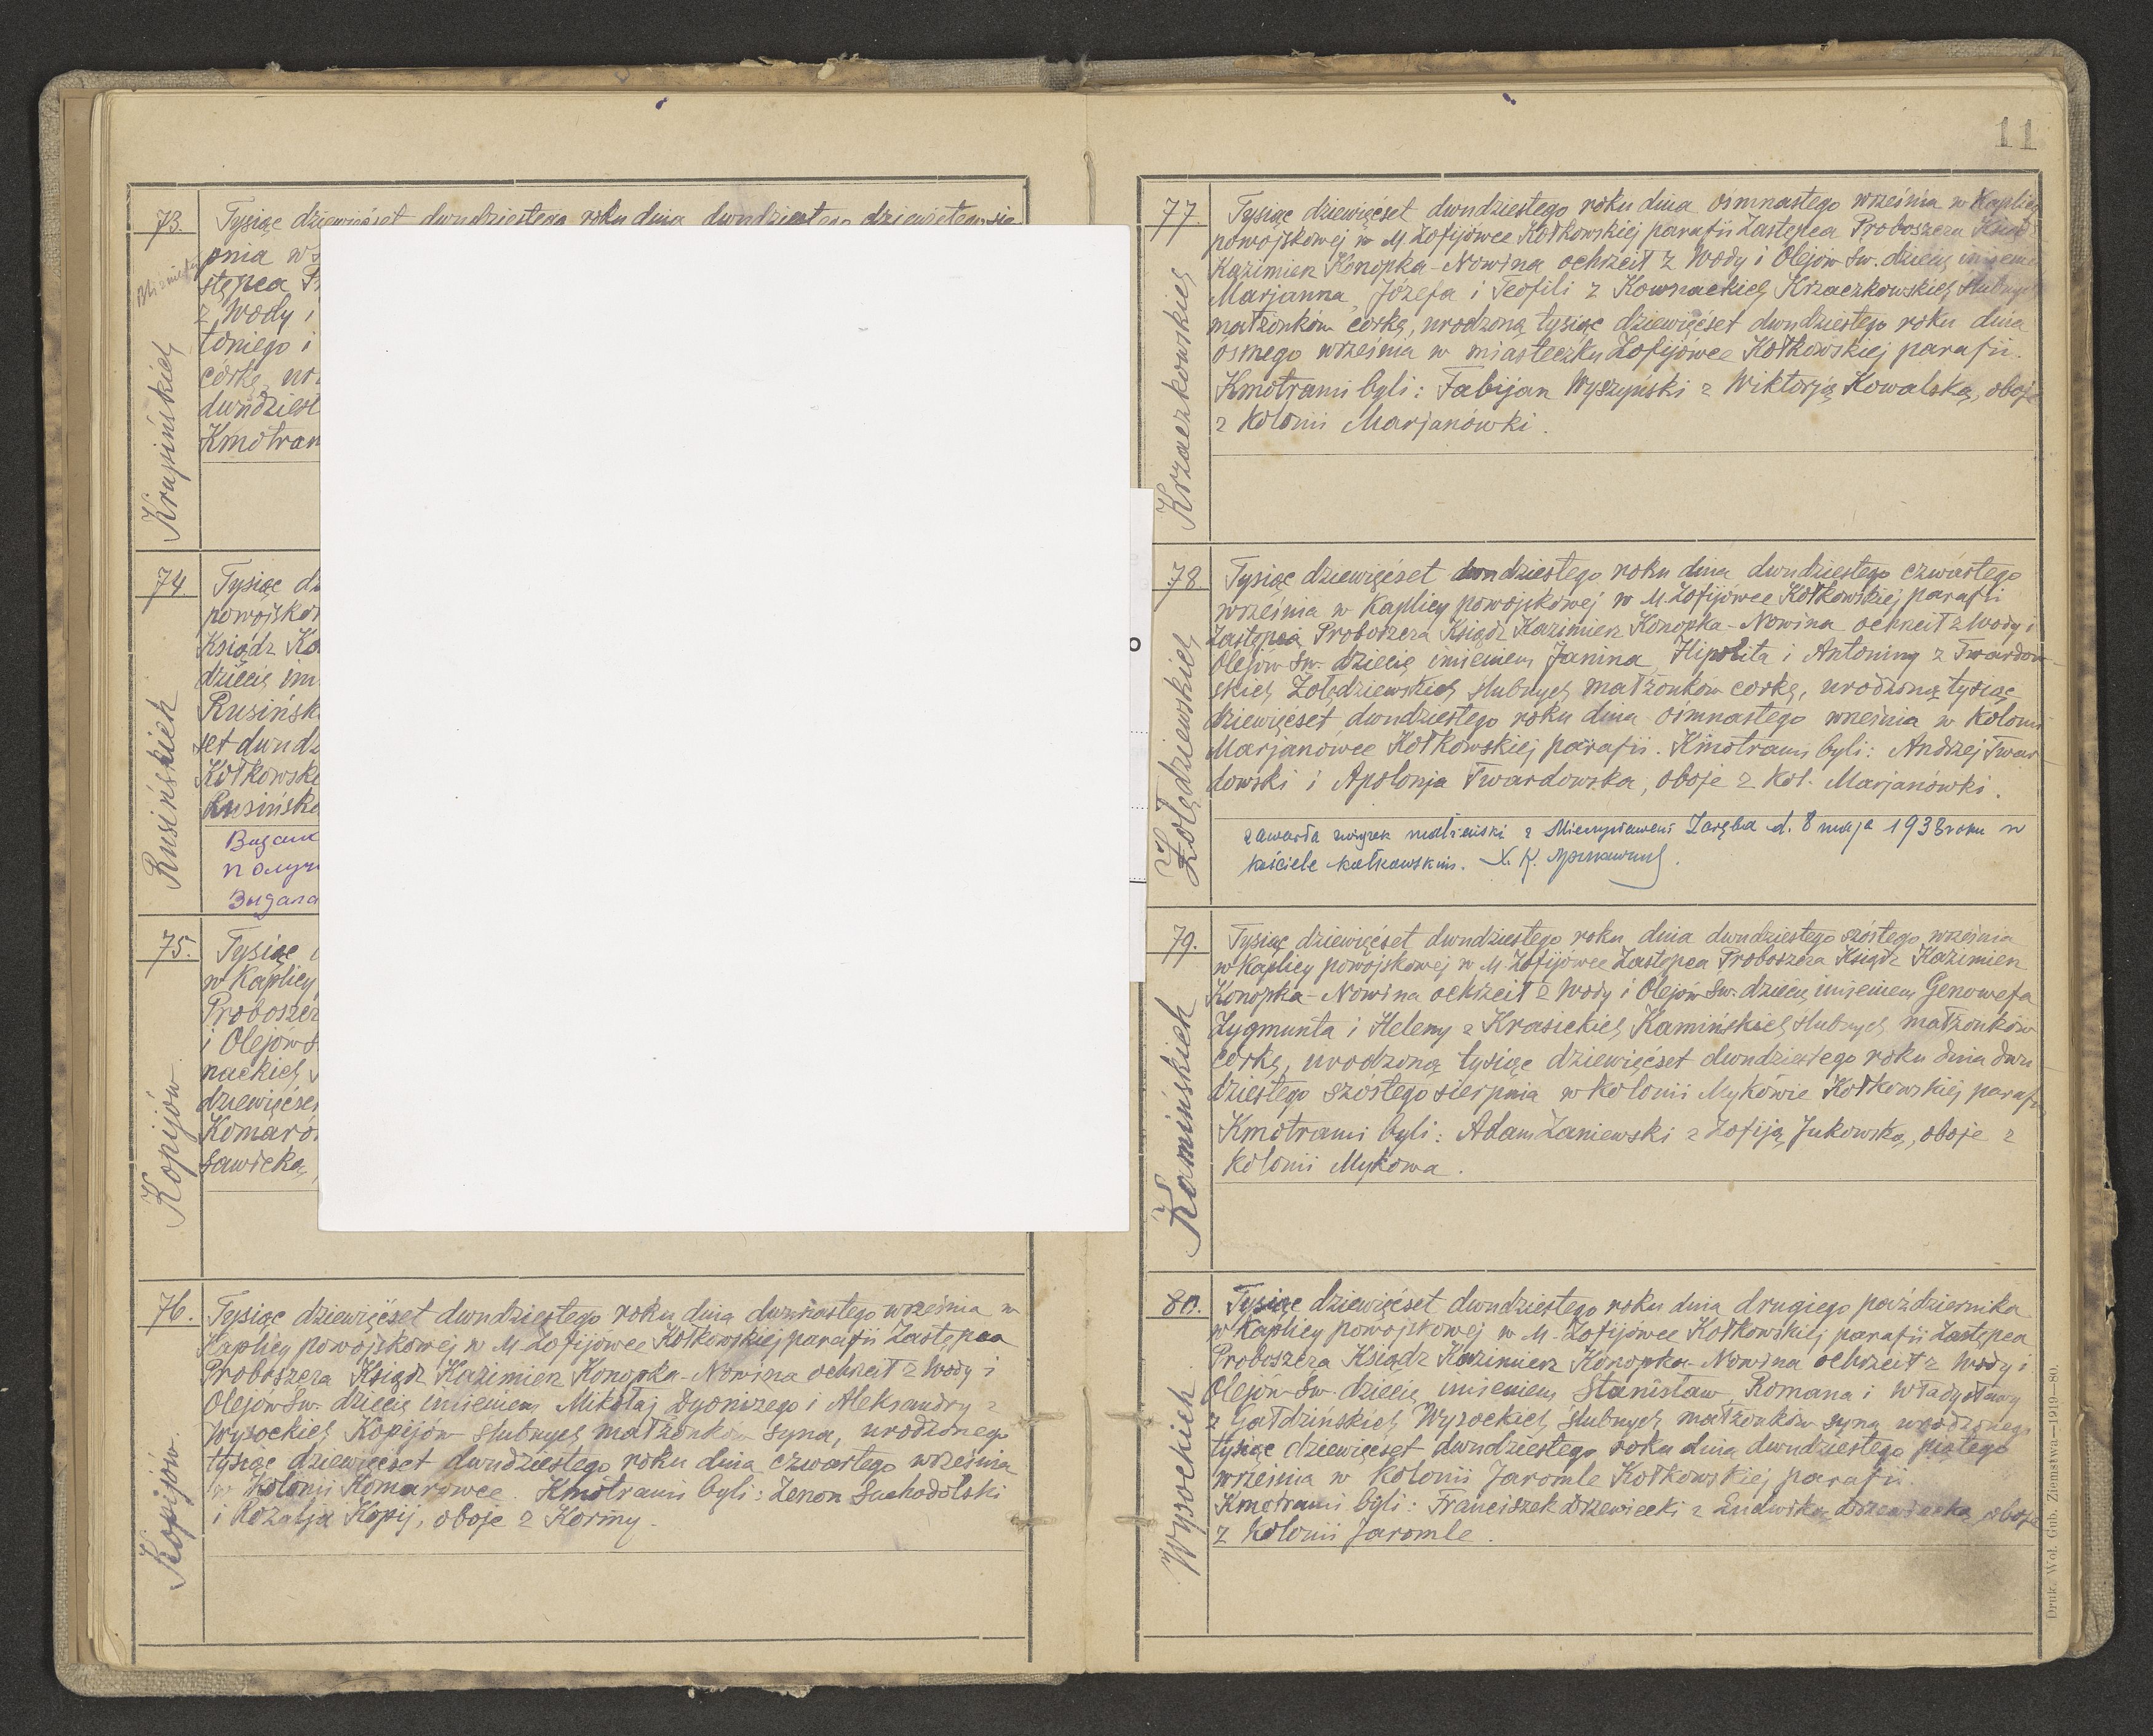 73.
Tysiąc dziewięćset dwudziestego roku dnia dwudziestego dziewiątego sier
pnia w
stępca
z Wody i
toniego i
córkę,
dwudziest
Kmotram
Krupińskich
74.
Tysiąc
powojskow
Ksiądz
dziecię im
Rusińsk
set dwudz
Kołkowski
Rusińska
получ
Rusińskich
75.
Tysiąc
w Kaplicy
Proboszcz
i Olejów
nackich
dziewięćset
Komaró
Sawicką,
Kopijów
76.
Tysiąc dziewięćset dwudziestego roku dnia dwunastego września w
Kaplicy powojskowej w M. Zofijówce Kołkowskiej parafii Zastępca
Proboszcza Ksiądz Kazimierz Konopka-Nowina ochrzcił z Wody i
Olejów Św. dziecię imieniem Mikołaj Dyonizego i Aleksandry z
Wysockich Kopijów ślubnych małżonków syna, urodzonego
tysiąc dziewięćset dwudziestego roku dnia czwartego września
w Kolonii Komarówce. Kmotrami byli: Zenon Suchodolski
i Rozalja Kopij, oboje z Kormy.
Kopijów.
11
77
Tysiąc dziewięćset dwudziestego roku dnia ośmnastego września w Kaplicy
powojskowej w M Zofijówce Kołkowskiej parafii Zastępca Proboszcza Ksiądz
Kazimierz Konopka-Nowina ochrzcił z Wody i Olejów Św. dziecię imieniem
Marjanna, Józefa i Teofili z Kownackich Krzaczkowskich ślubnych
małżonków córkę, urodzoną tysiąc dziewięćset dwudziestego roku dnia
ósmego września w miasteczku Zofijówce Kołkowskiej parafii.
Kmotrami byli: Fabijan Wyszyński z Wiktorją Kowalską, oboje
z Kolonii Marjanówki.
Krzaczkowskich
78.
Tysiąc dziewięćset dwudziestego roku dnia dwudziestego czwartego
września w Kaplicy powojskowej w M. Zofijówce Kołkowskiej parafii
Zastępca Proboszcza Ksiądz Kazimierz Konopka-Nowina ochrzcił z Wody i
Olejów Św. dziecię imieniem Janina, Hipolita i Antoniny z Twardow-
skich Żołędziewskich ślubnych małżonków corkę, urodzoną tysiąc
dziewięćset dwudziestego roku dnia ośmnastego września w Kolonii
Marjanówce Kołkowskiej parafii. Kmotrami byli: Andrzej Twar-
dowski i Apolonja Twardowska, oboje z Kol. Marjanówki.
zawarła związek małżeński z Mieczysławem Zaręba d. 8 maja 1938 roku w
kościele kołkowskim. X. K.
Żołędziewskich
79.
Tysiąc dziewięćset dwudziestego roku dnia dwudziestego szóstego września
w Kaplicy powojskowej w M Zofijówce Zastępca Proboszcza Ksiądz Kazimierz
Konopka-Nowina ochrzcił z Wody i Olejów Św. dziecię imieniem Genowefa
Zygmunta i Heleny z Krasickich Kamińskich ślubnych małżonków
córkę, urodzoną tysiąc dziewięćset dwudziestego roku dnia dwu
dziestego szóstego sierpnia w Kolonii Mykowie Kołkowskiej parafii
Kmotrami byli: Adam Zaniewski z Zofiją Jukowską, oboje z
Kolonii Mykowa.
Kamińskich
80.
Tysiąc dziewięćset dwudziestego roku dnia drugiego października
w Kaplicy powojskowej w M. Zofijówce Kołkowskiej parafii Zastępca
Proboszcza Ksiądz Kazimierz Konopka-Nowina ochrzcił z Wody i
Olejów Św. dziecię imieniem Stanisław, Romana i Władysławy
z Gałdzińskich Wysockich ślubnych małżonków syna urodzonego
tysiąc dziewięćset dwudziestego roku dnia dwudziestego piątego
września w Kolonii Jaromle Kołkowskiej parafii
Kmotrami byli: Franciszek Drzewiecki z Ludwiką Drzewiecką, oboje
z Kolonii Jaromle.
Wysockich
Druk. Woł. Gub. Ziemstwa.—1919—80.